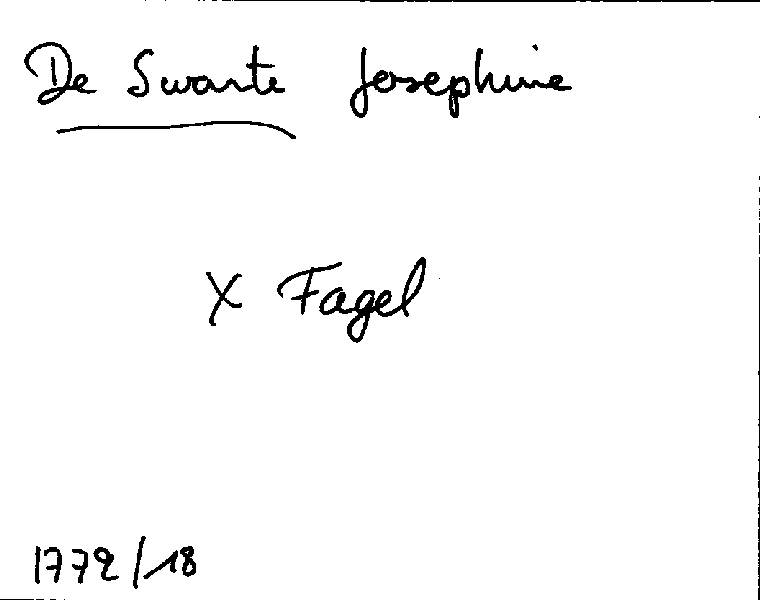 De Swarte Josephine
X Fagel
1772/18